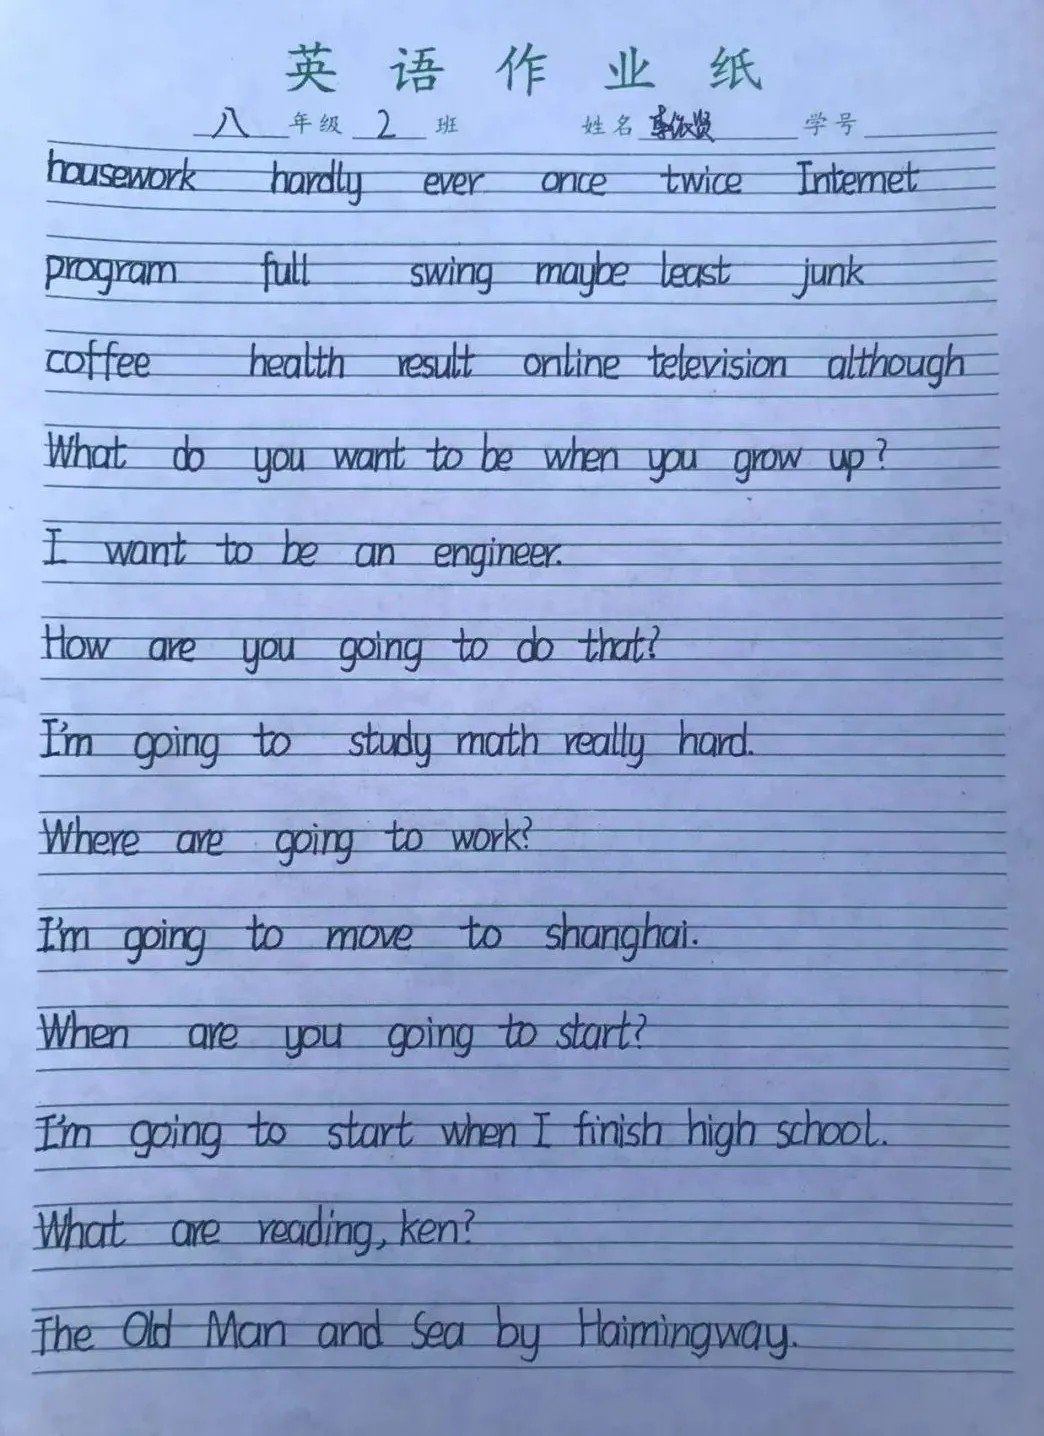 英语作业纸
八年级 2 班 姓名 李依贤 学号
housework hardly ever once twice Internet
program full swing maybe least junk
coffee health result online television although
What do you want to be when you grow up?
I want to be an engineer.
How are you going to do that?
I'm going to study math really hard.
Where are going to work?
I'm going to move to shanghai.
When are you going to start?
I'm going to start when I finish high school.
What are reading, ken?
The Old Man and Sea by Haimingway.